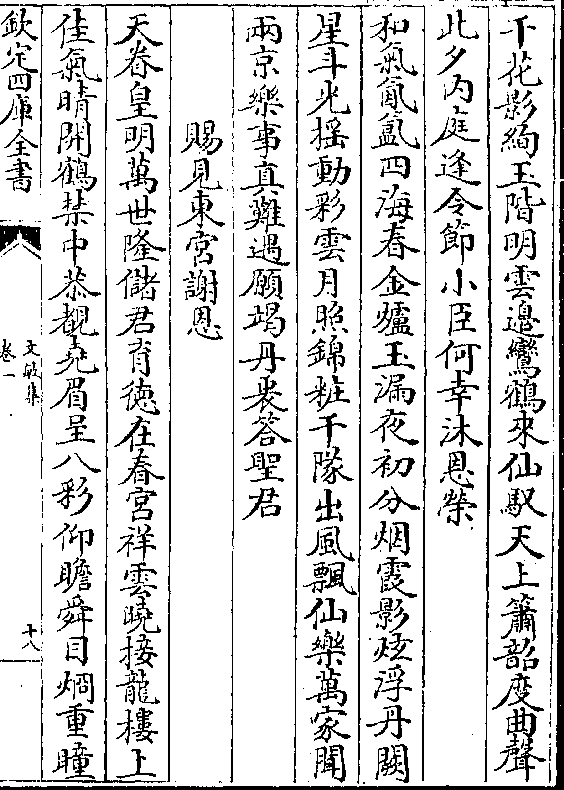 千花影絢玉階明雲邉鸞鶴來仙馭天上簫韶度曲聲
此夕内庭逢令節小臣何幸沐恩榮
和氣氤氲四海春金爐玉漏夜初分烟霞影炫浮丹闕
星斗光揺動彩雲月照錦粧千隊出風飄仙樂萬家聞
兩京樂事真難遇願竭丹衷答聖君
賜見東宫謝恩
天眷皇明萬世隆儲君育徳在春宮祥雲曉接龍樓上
佳氣晴開鶴禁中恭覩堯眉呈八彩仰瞻舜目烱重瞳
欽定四庫全書
文敏集
卷一
十八